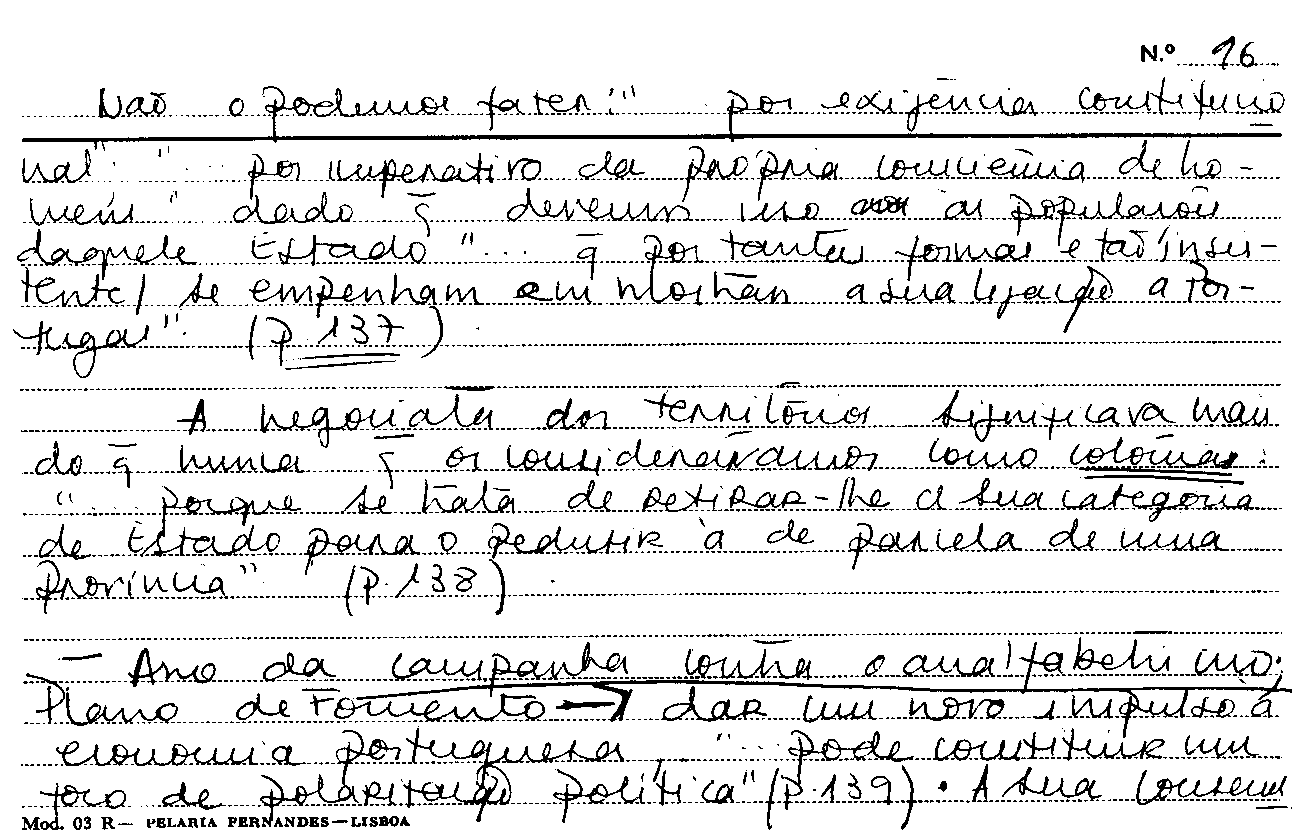 N.º 16
Não o podemos fazer: " por exigência constitucio
nal" " ... por imperativo da própria consciência de ho-
mens" dado q̄ devemos isso às populações
daquele Estado "... q̄ por tantas formas e tão insis-
tente/ se empenham em mostrar a sua ligação a Por-
tugal". (p. 137).
A negociata dos territórios significava mais
do q̄ nunca q̄ os considerávamos como colónias:
"... porque se trata de retirar-lhe a sua categoria
de Estado para o reduzir à de parcela de uma
Província" (p. 138).
— Ano da campanha contra o analfabetismo;
Plano de Fomento → dar um novo impulso à
economia portuguesa, "... pode constituir um
foco de polarização política" (p. 139). A sua
Mod. 03 R — PELARIA FERNANDES — LISBOA